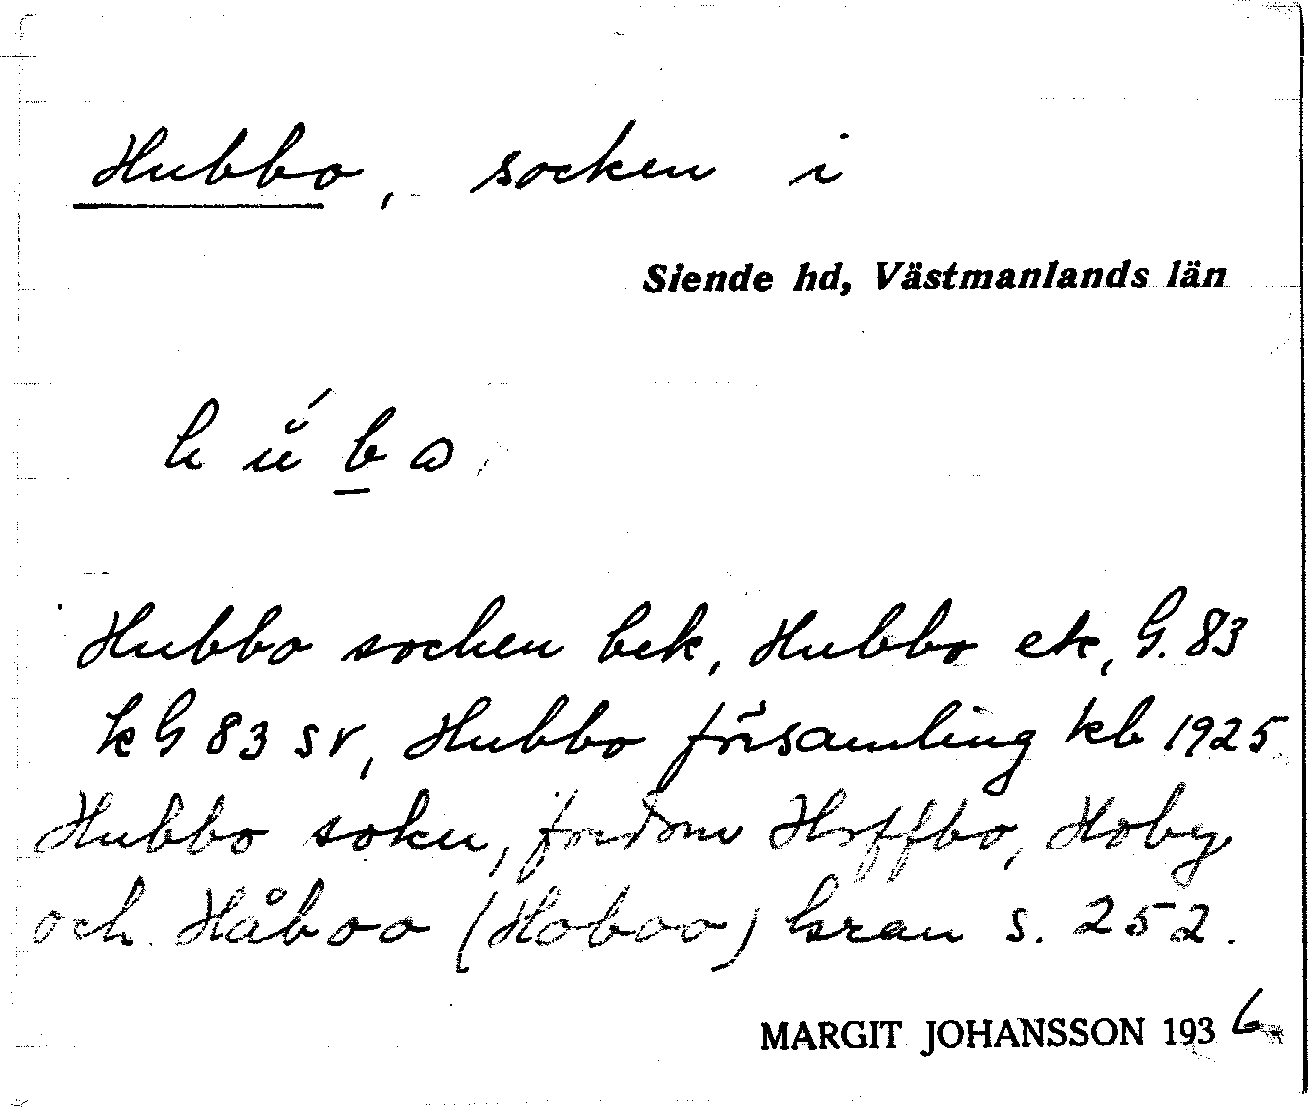 Hubbo, socken i
Siende hd, Västmanlands län
húbω
Hubbo socken bek, Hubbo ek, G. 83
k G 83 sv, Hubbo församling kb 1925
Hubbo sokn, fordom Hoffbo, Hoby
och Håboo (Hoboo) Gran s. 252.
MARGIT JOHANSSON 1936